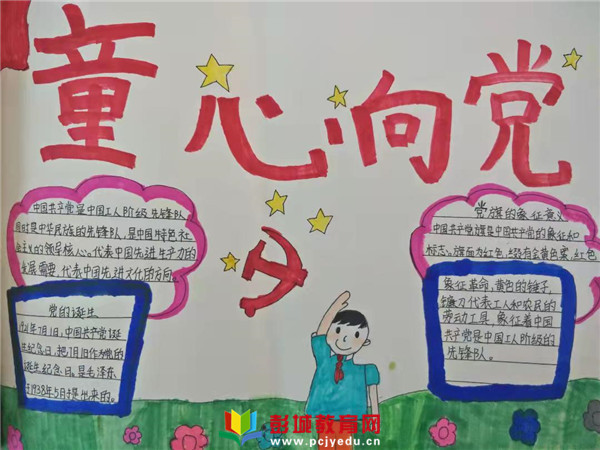 童心向党
中国共产党是中国工人阶级先锋队,
同时是中华民族的先锋队,是中国特色社
会主义的领导核心。代表中国先进生产力的
发展需要,代表中国先进文化的方向。
党的诞生
1921年7月1日,中国共产党诞
生纪念日,把7月1日作为党的
诞生纪念日。是毛泽东
于1938年5月提出来的。
党旗的象征意义
中国共产党旗是中国共产党的象征和
标志。旗面为红色,缀有金黄色案,红色
象征革命,黄色的锤子、
镰刀代表工人和农民的
劳动工具,象征着中国
共产党是中国工人阶级的
先锋队。
彭城教育网
www.pcjyedu.cn